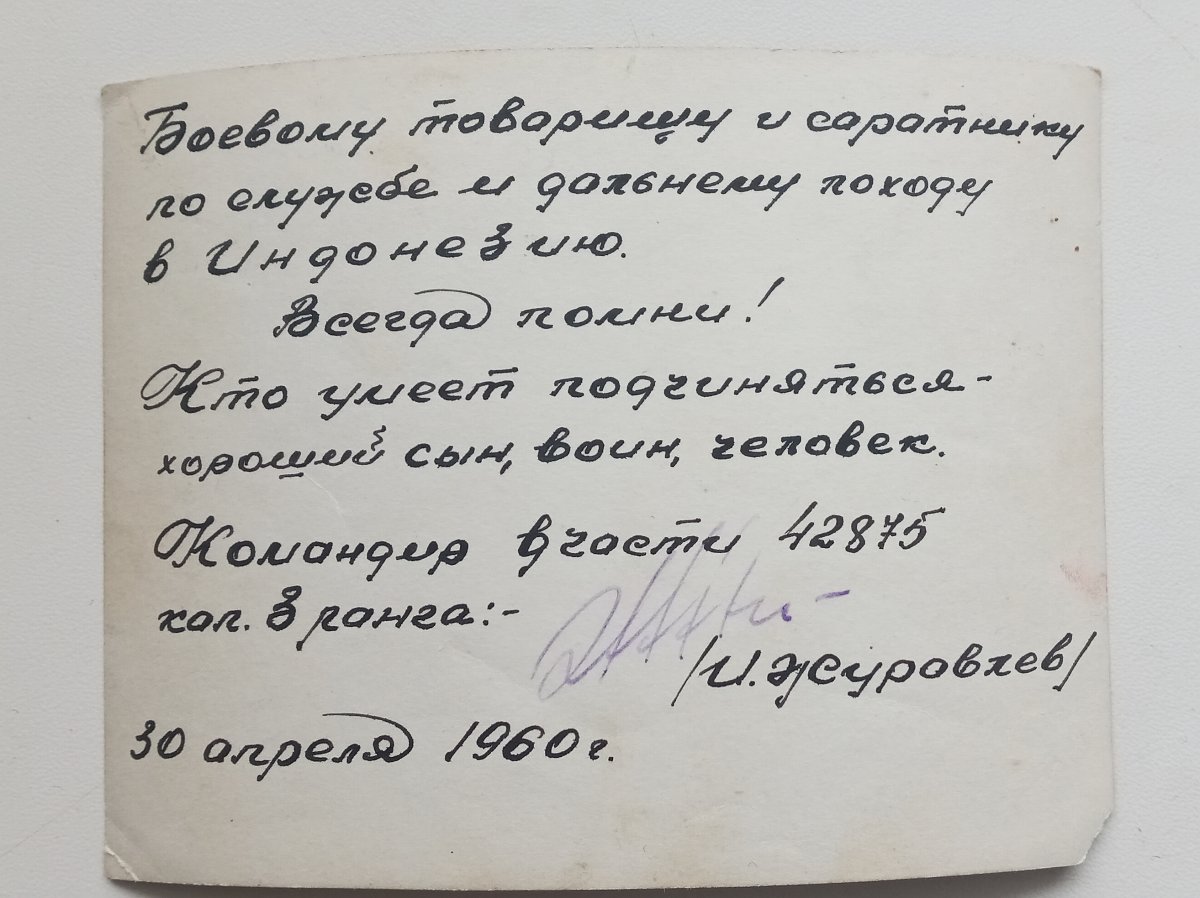 Боевому товарищу и саратнику
по службе и дальнему походу
в Индонезию.
Всегда помни!
Кто умеет подчиняться -
хороший сын, воин, человек.
Командир в части 42875
кап. 3 ранга:-
/И. Журавлев/
30 апреля 1960 г.